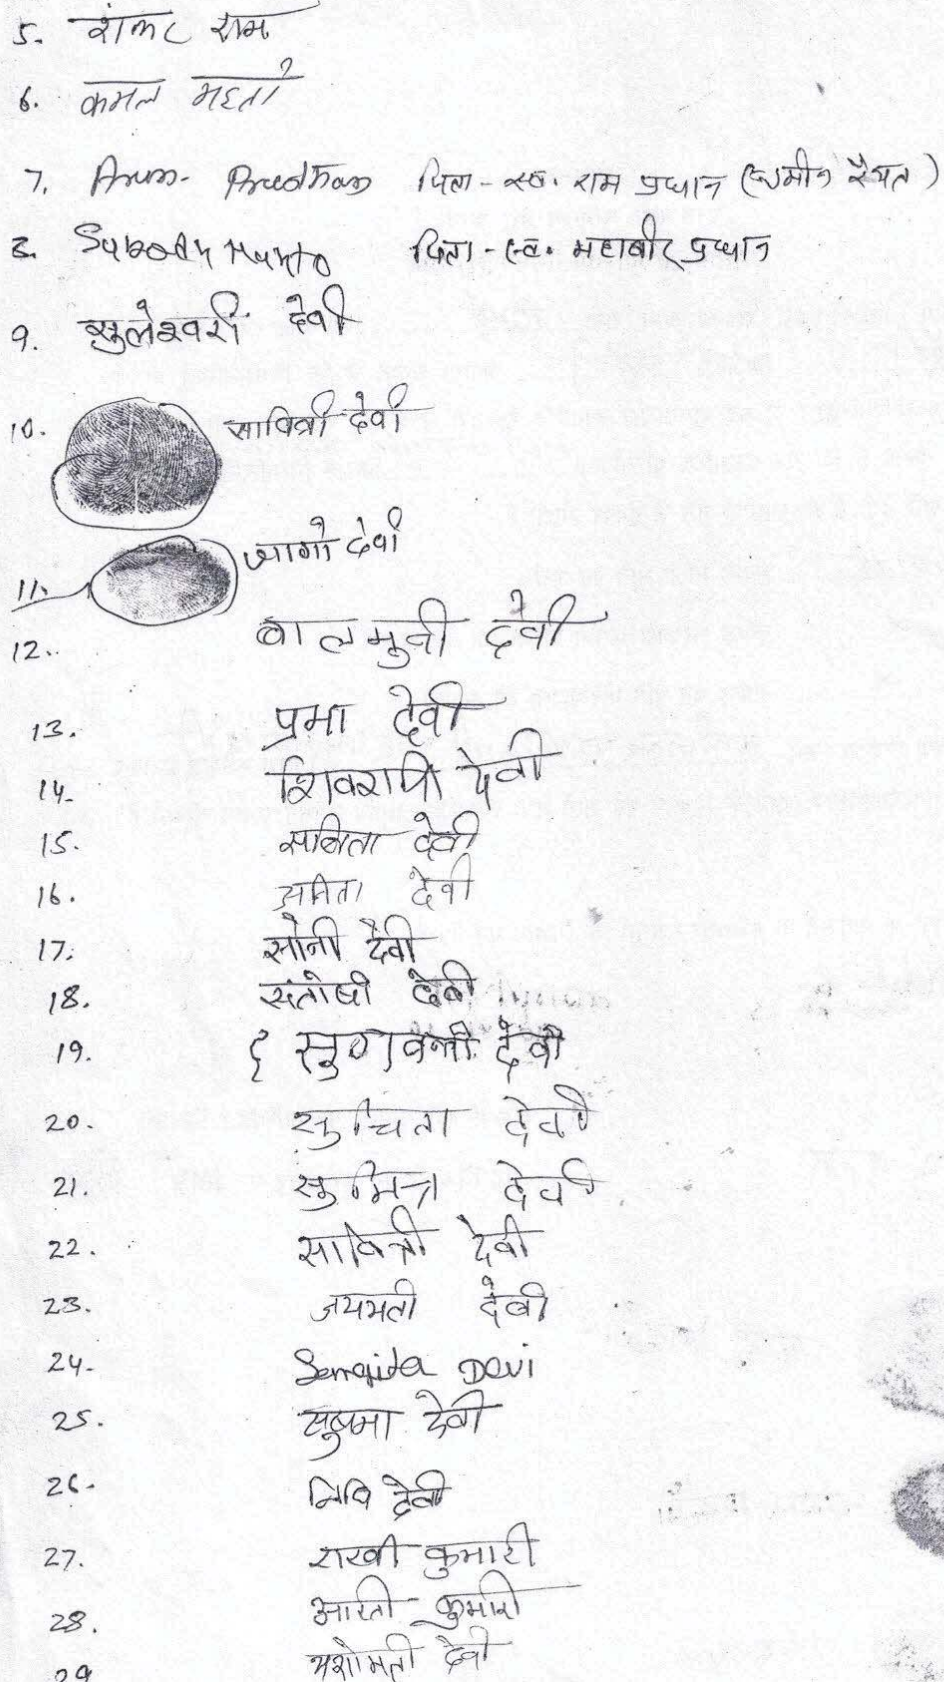 5. शंकर राम
6. कमल महतो
7. Arun Pradhan पिता - स्व. राम प्रधान (जमीन रैयत)
8. Subodh पिता - स्व. महाबीर प्रधान
9. सुलेश्वरी देवी
10. सावित्री देवी
11. जागो देवी
12. बालमुनी देवी
13. प्रमा देवी
14. शिवरात्री देवी
15. सबिता देवी
16. अनिता देवी
17. सोनी देवी
18. संतोषी देवी
19. देवी
20. सुचिता देवी
21. सुमित्रा देवी
22. सावित्री देवी
23. जयमती देवी
24. Devi
25. सुषमा देवी
26. देवी
27. राखी कुमारी
28. आरती कुमारी
29 यशोमती देवी